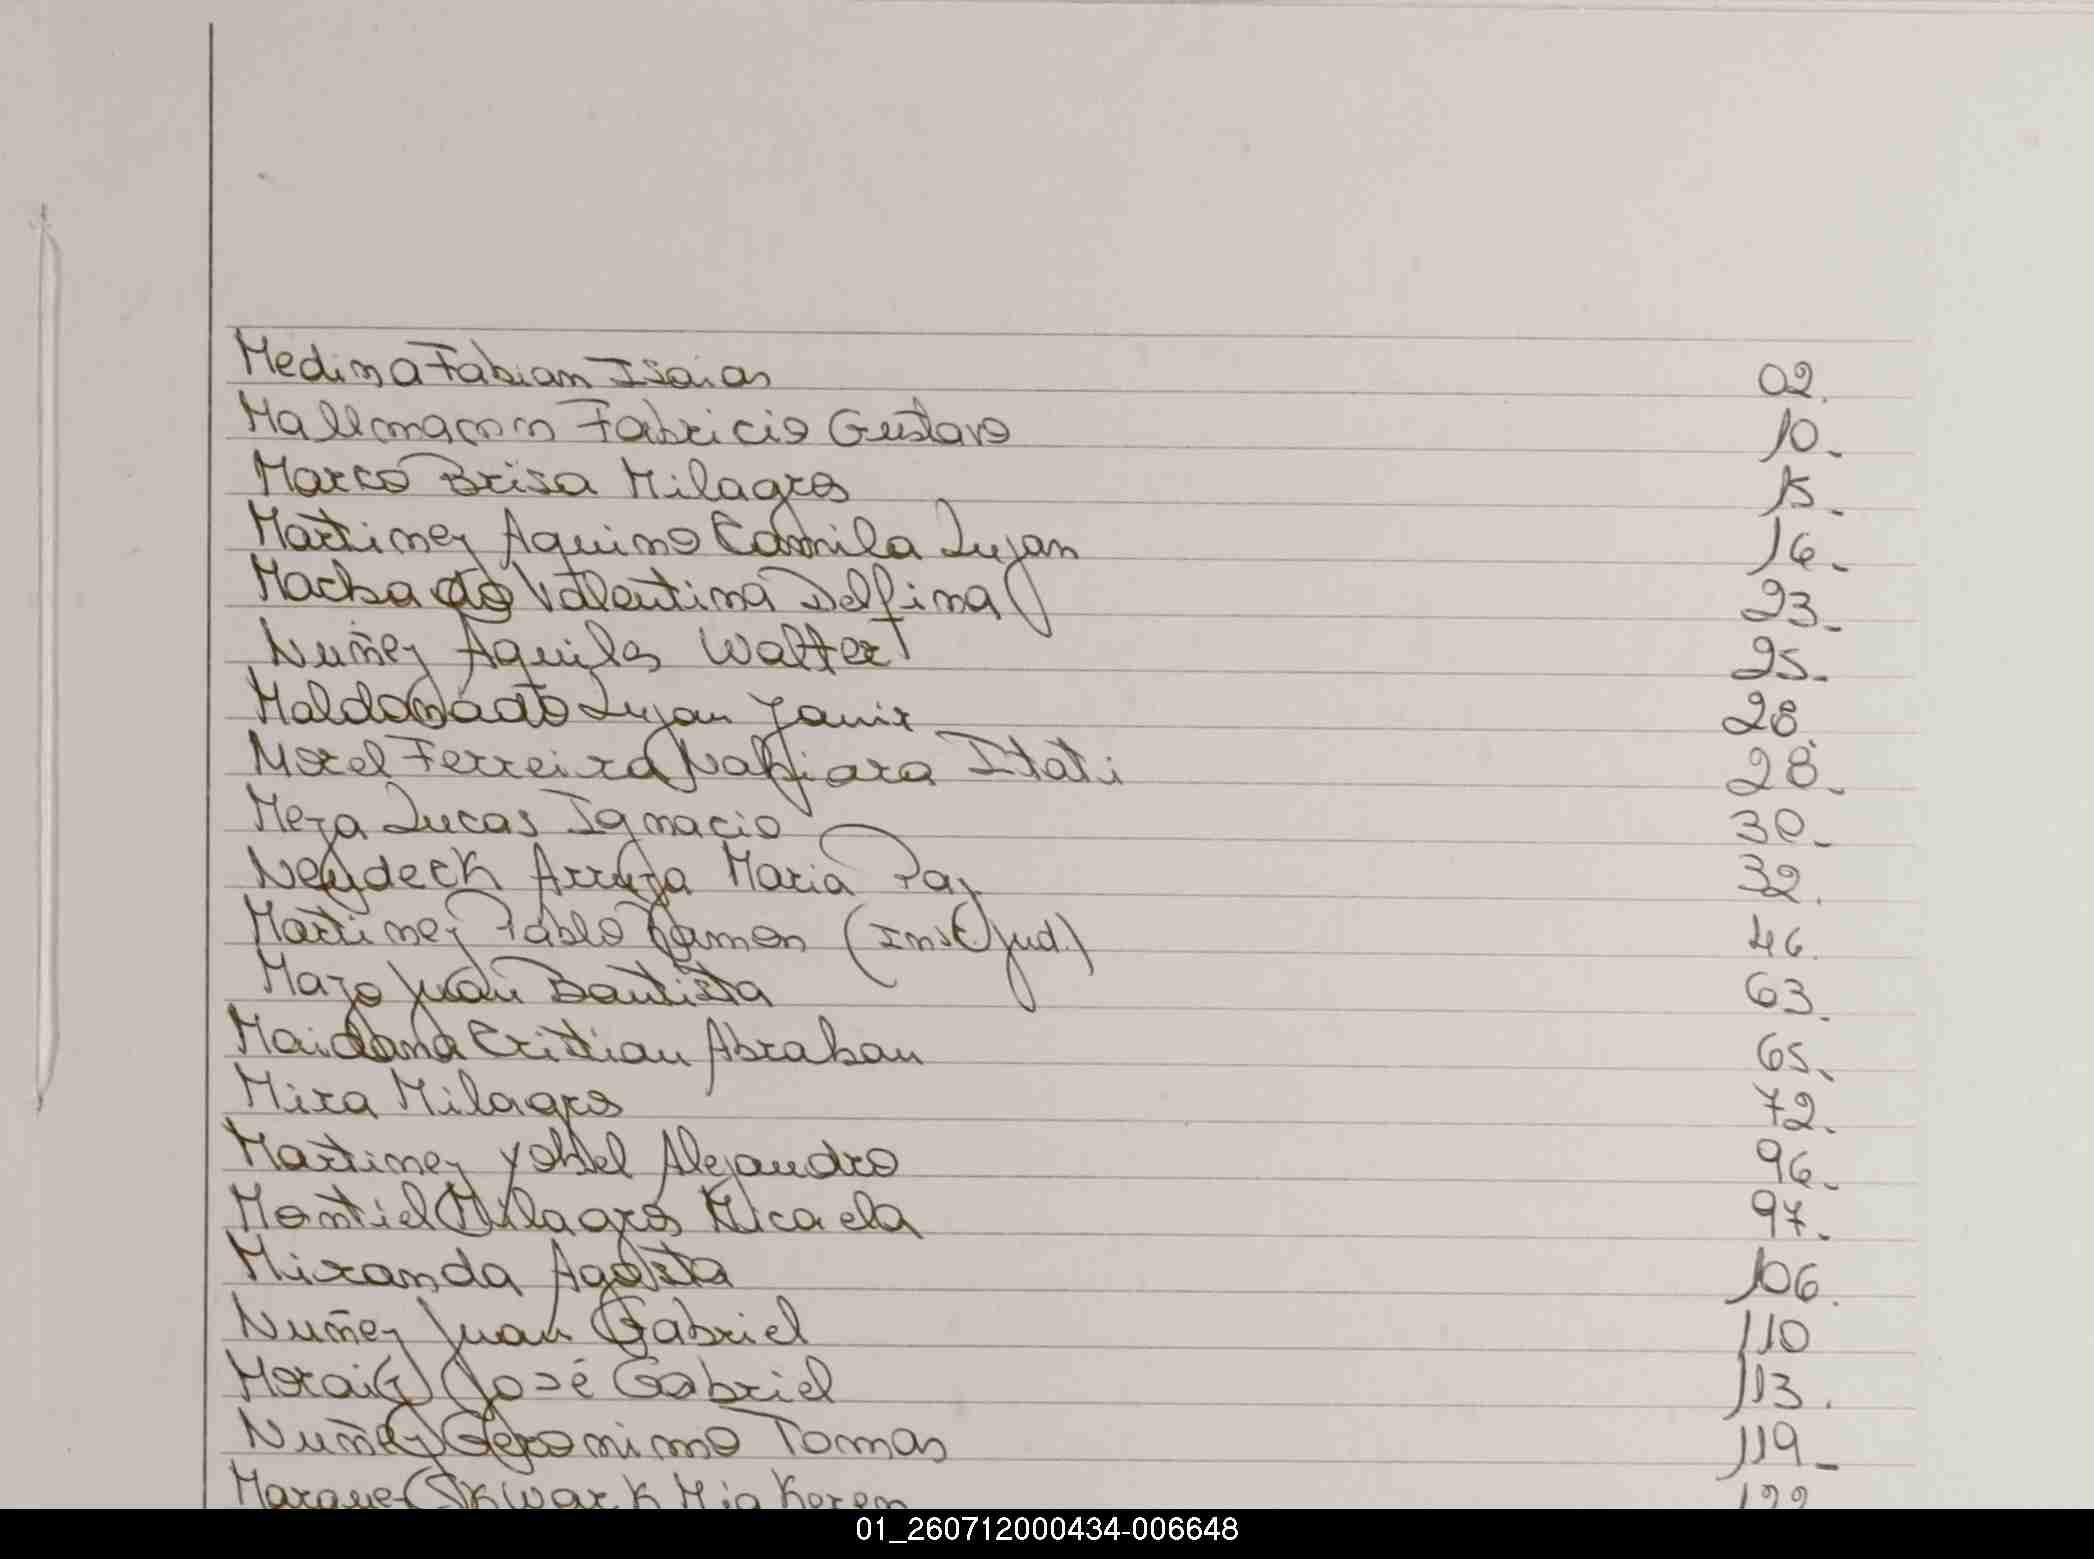 Medina Fabian Isaias 02.
Mallmann Fabricio Gustavo 10.-
Marco Brisa Milagros 15.-
Martinez Aquino Camila Lujan 16.-
Machado Valentina Delfina 23.-
Nuñez Aquiles Walter 25.-
Maldonado Lujan Yanir 28.
Morel Ferreira Nahiara Itati 28.-
Meza Lucas Ignacio 30.-
Neydeck Arruza Maria Paz 32.
Martinez Pablo Ramon (Inst. Jud.) 46.
Mazo Juan Bautista 63.-
Maidana Cristian Abrahan 65.-
Mira Milagros 72.
Martinez Yohel Alejandro 96.-
Montiel Milagros Micaela 97.-
Miranda Agosta 106.
Nuñez Juan Gabriel 110
Morais José Gabriel 113.
Nuñez Geronimo Tomas 119.-
Marquez Skwark Mia Keren 122
01_260712000434-006648